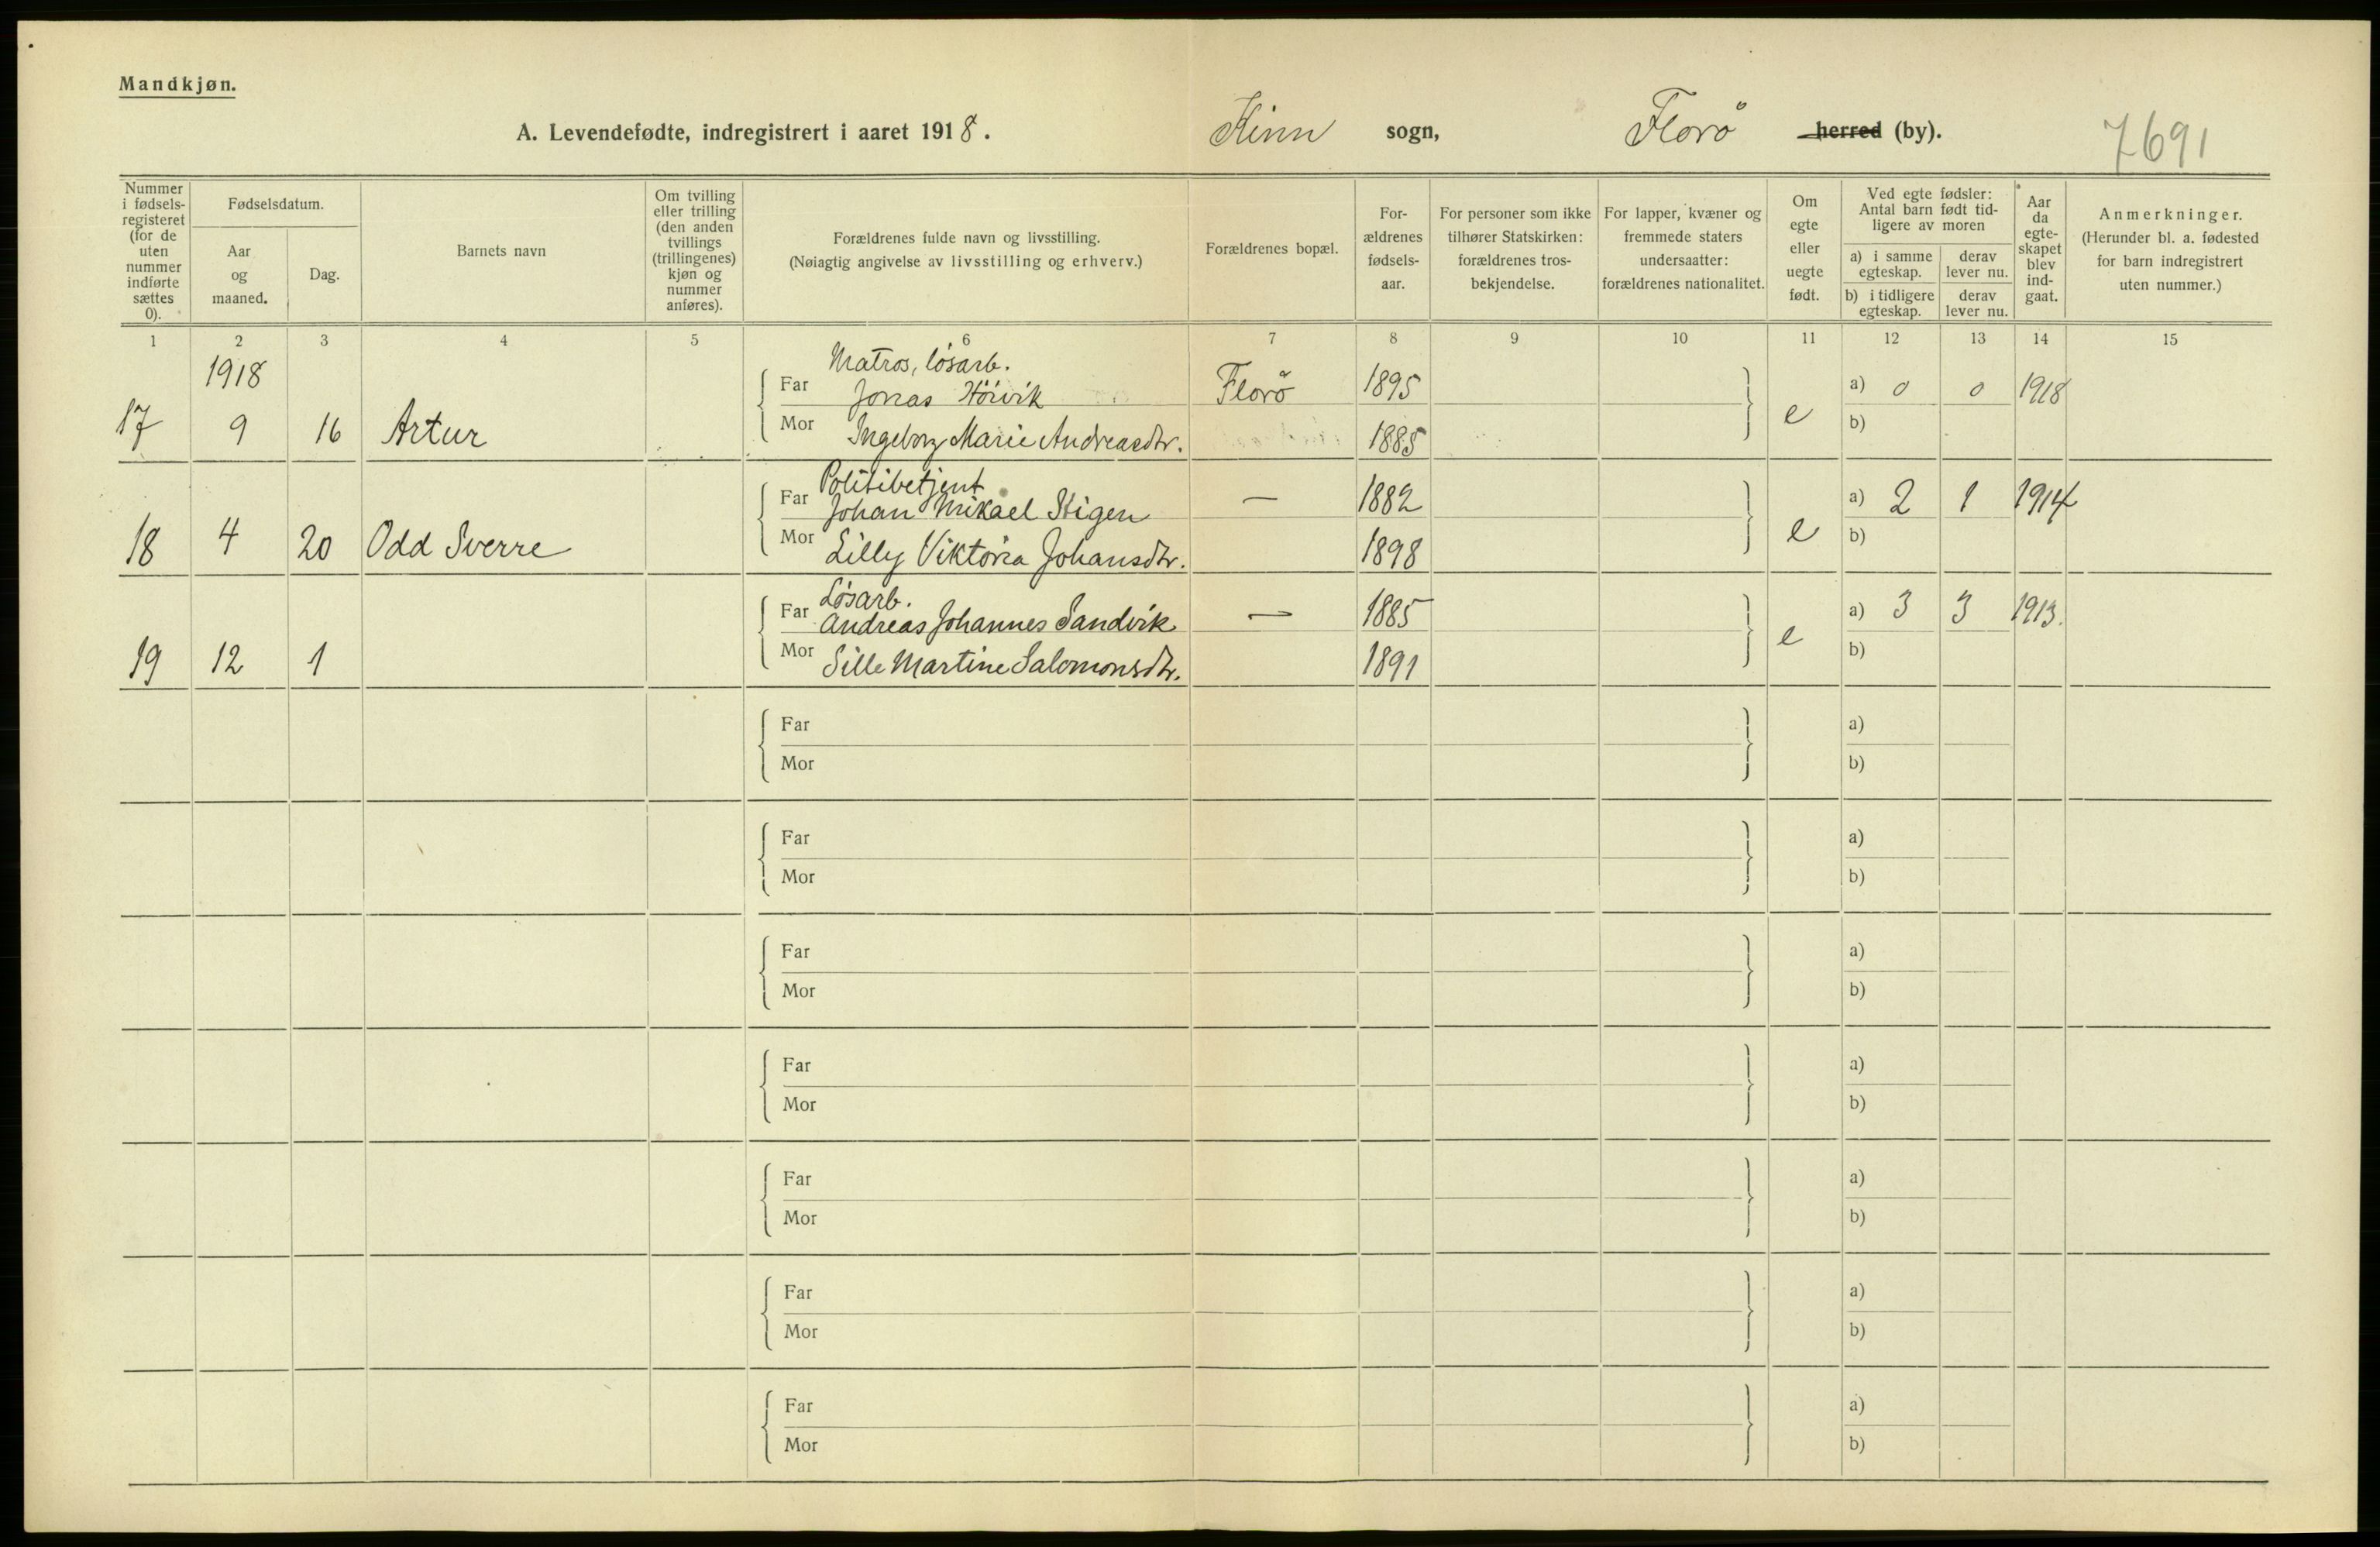 Mandkjøn.
A. Levendefødte, indregistrert i aaret 1918. Kinn sogn, Florö herred (by). 7691
Nummer i fødsels-registeret (for de uten nummer indførte sættes 0).
Fødselsdatum.
Aar og maaned.
Dag.
Barnets navn
Om tvilling eller trilling (den anden tvillings (trillingenes) kjøn og nummer anføres).
Forældrenes fulde navn og livsstilling.
(Nøiagtig angivelse av livsstilling og erhverv.)
Forældrenes bopæl.
For-ældrenes fødsels-aar.
For personer som ikke tilhører Statskirken: forældrenes tros-bekjendelse.
For lapper, kvæner og fremmede staters undersaatter: forældrenes nationalitet.
Om egte eller uegte født.
Ved egte fødsler: Antal barn født tid-ligere av moren
a) i samme egteskap. derav lever nu.
b) i tidligere egteskap. derav lever nu.
Aar da egte-skapet blev ind-gaat.
Anmerkninger.
(Herunder bl. a. fødested for barn indregistrert uten nummer.)
1 2 3 4 5 6 7 8 9 10 11 12 13 14 15
1918 Matros, lösarb.
Far Jonas Hörvik Florö 1895 a) 0 0 1918
17 9 16 Artur Mor Ingeborg Marie Andreasdtr. 1885 e b)
Politibetjent
Far Johan Mikael Stigen — 1882 a) 2 1 1914
18 4 20 Odd Sverre Mor Lilly Viktoria Johansdtr. 1898 e b)
Lösarb.
Far Andreas Johannes Sandvik — 1885 a) 3 3 1913.
19 12 1 Mor Sille Martine Salomonsdtr. 1891 e b)
Far a)
Mor b)
Far a)
Mor b)
Far a)
Mor b)
Far a)
Mor b)
Far a)
Mor b)
Far a)
Mor b)
Far a)
Mor b)